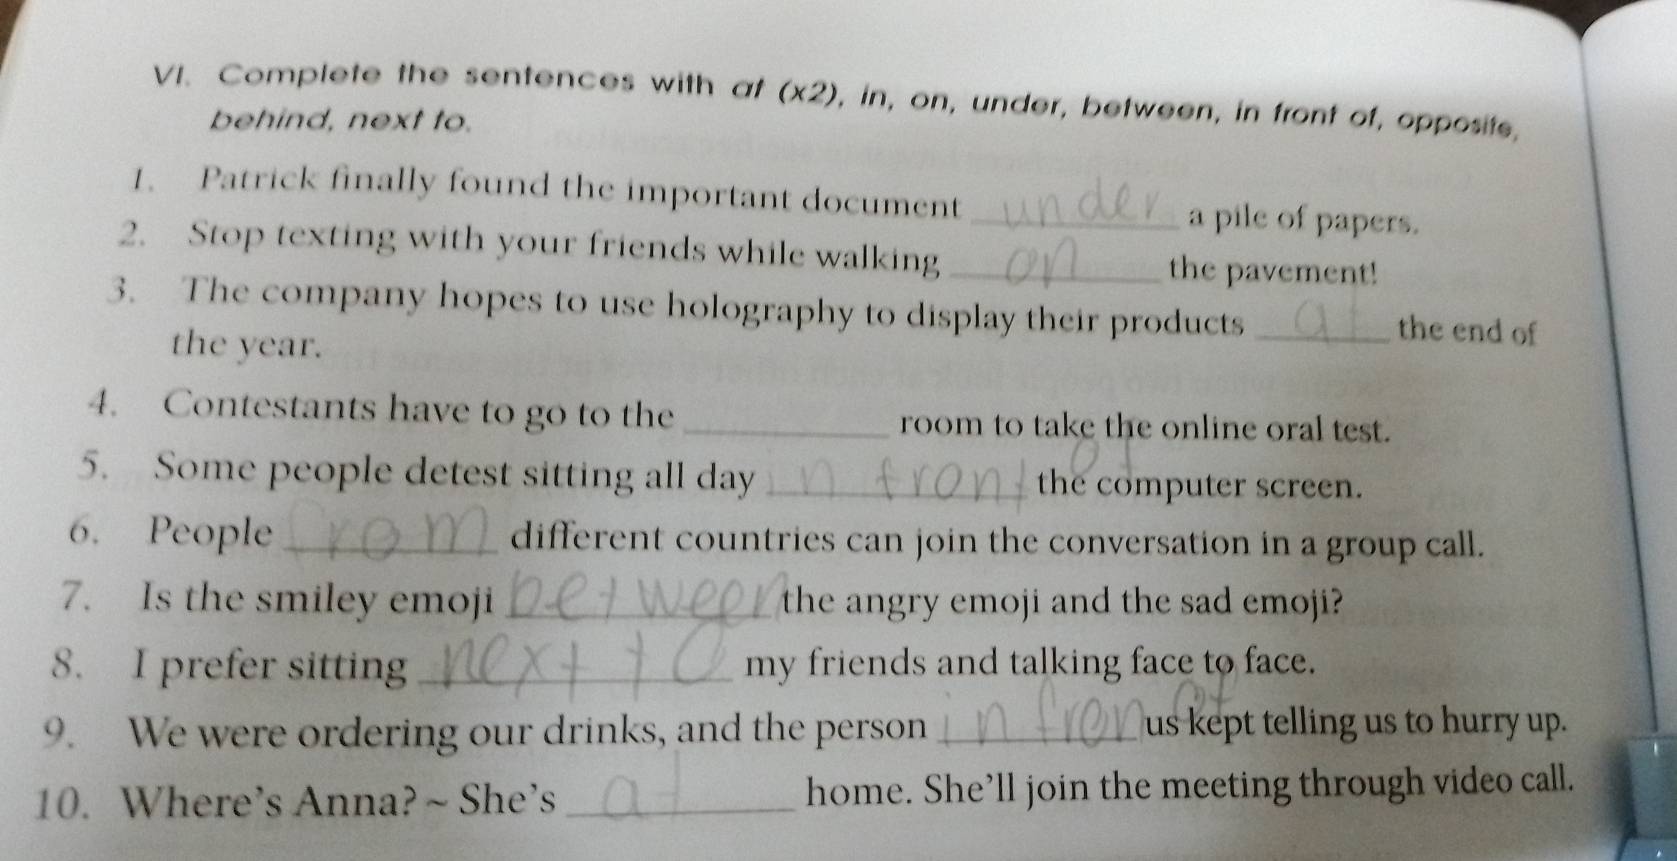 VI. Complete the sentences with at (x2), in, on, under, between, in front of, opposite,
behind, next to.
1. Patrick finally found the important document under a pile of papers.
2. Stop texting with your friends while walking on the pavement!
3. The company hopes to use holography to display their products at the end of
the year.
4. Contestants have to go to the ____________ room to take the online oral test.
5. Some people detest sitting all day in front of the computer screen.
6. People from different countries can join the conversation in a group call.
7. Is the smiley emoji between the angry emoji and the sad emoji?
8. I prefer sitting next to my friends and talking face to face.
9. We were ordering our drinks, and the person in front of us kept telling us to hurry up.
10. Where's Anna? ~ She's at home. She'll join the meeting through video call.